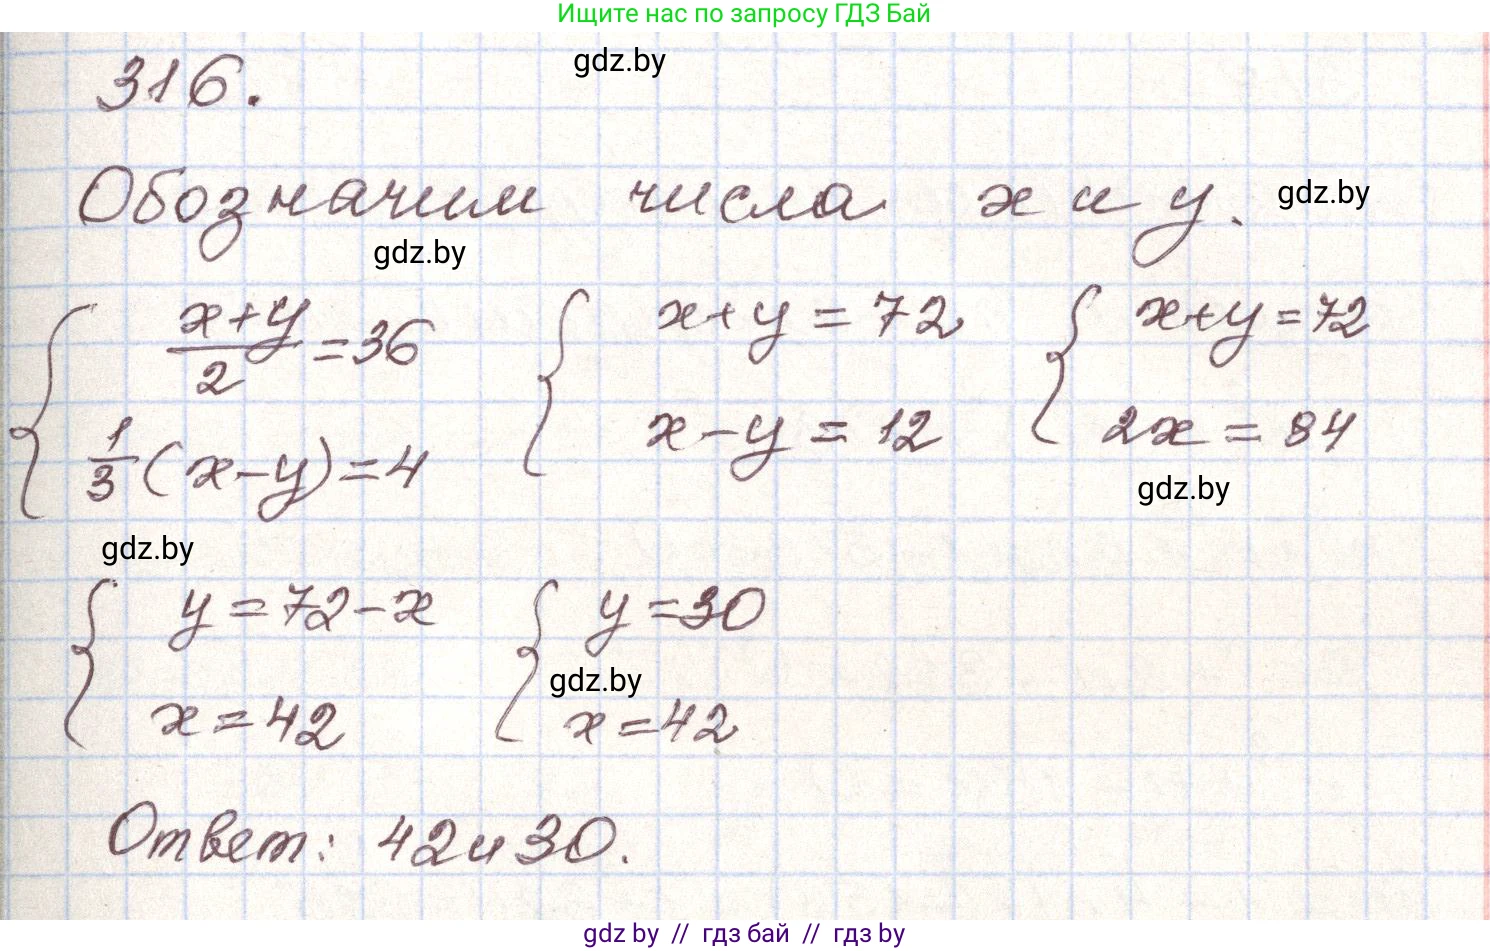 Ищите нас по запросу ГДЗ Бай
gdz.by
316.
Обозначим числа x и y.
gdz.by
gdz.by
{ (x+y)/2 = 36 { x+y = 72 { x+y = 72
1/3 (x-y) = 4 x-y = 12 2x = 84
gdz.by
gdz.by
{ y = 72-x { y = 30
gdz.by
x = 42 x = 42
Ответ: 42 и 30.
gdz by // гдз бай // гдз by